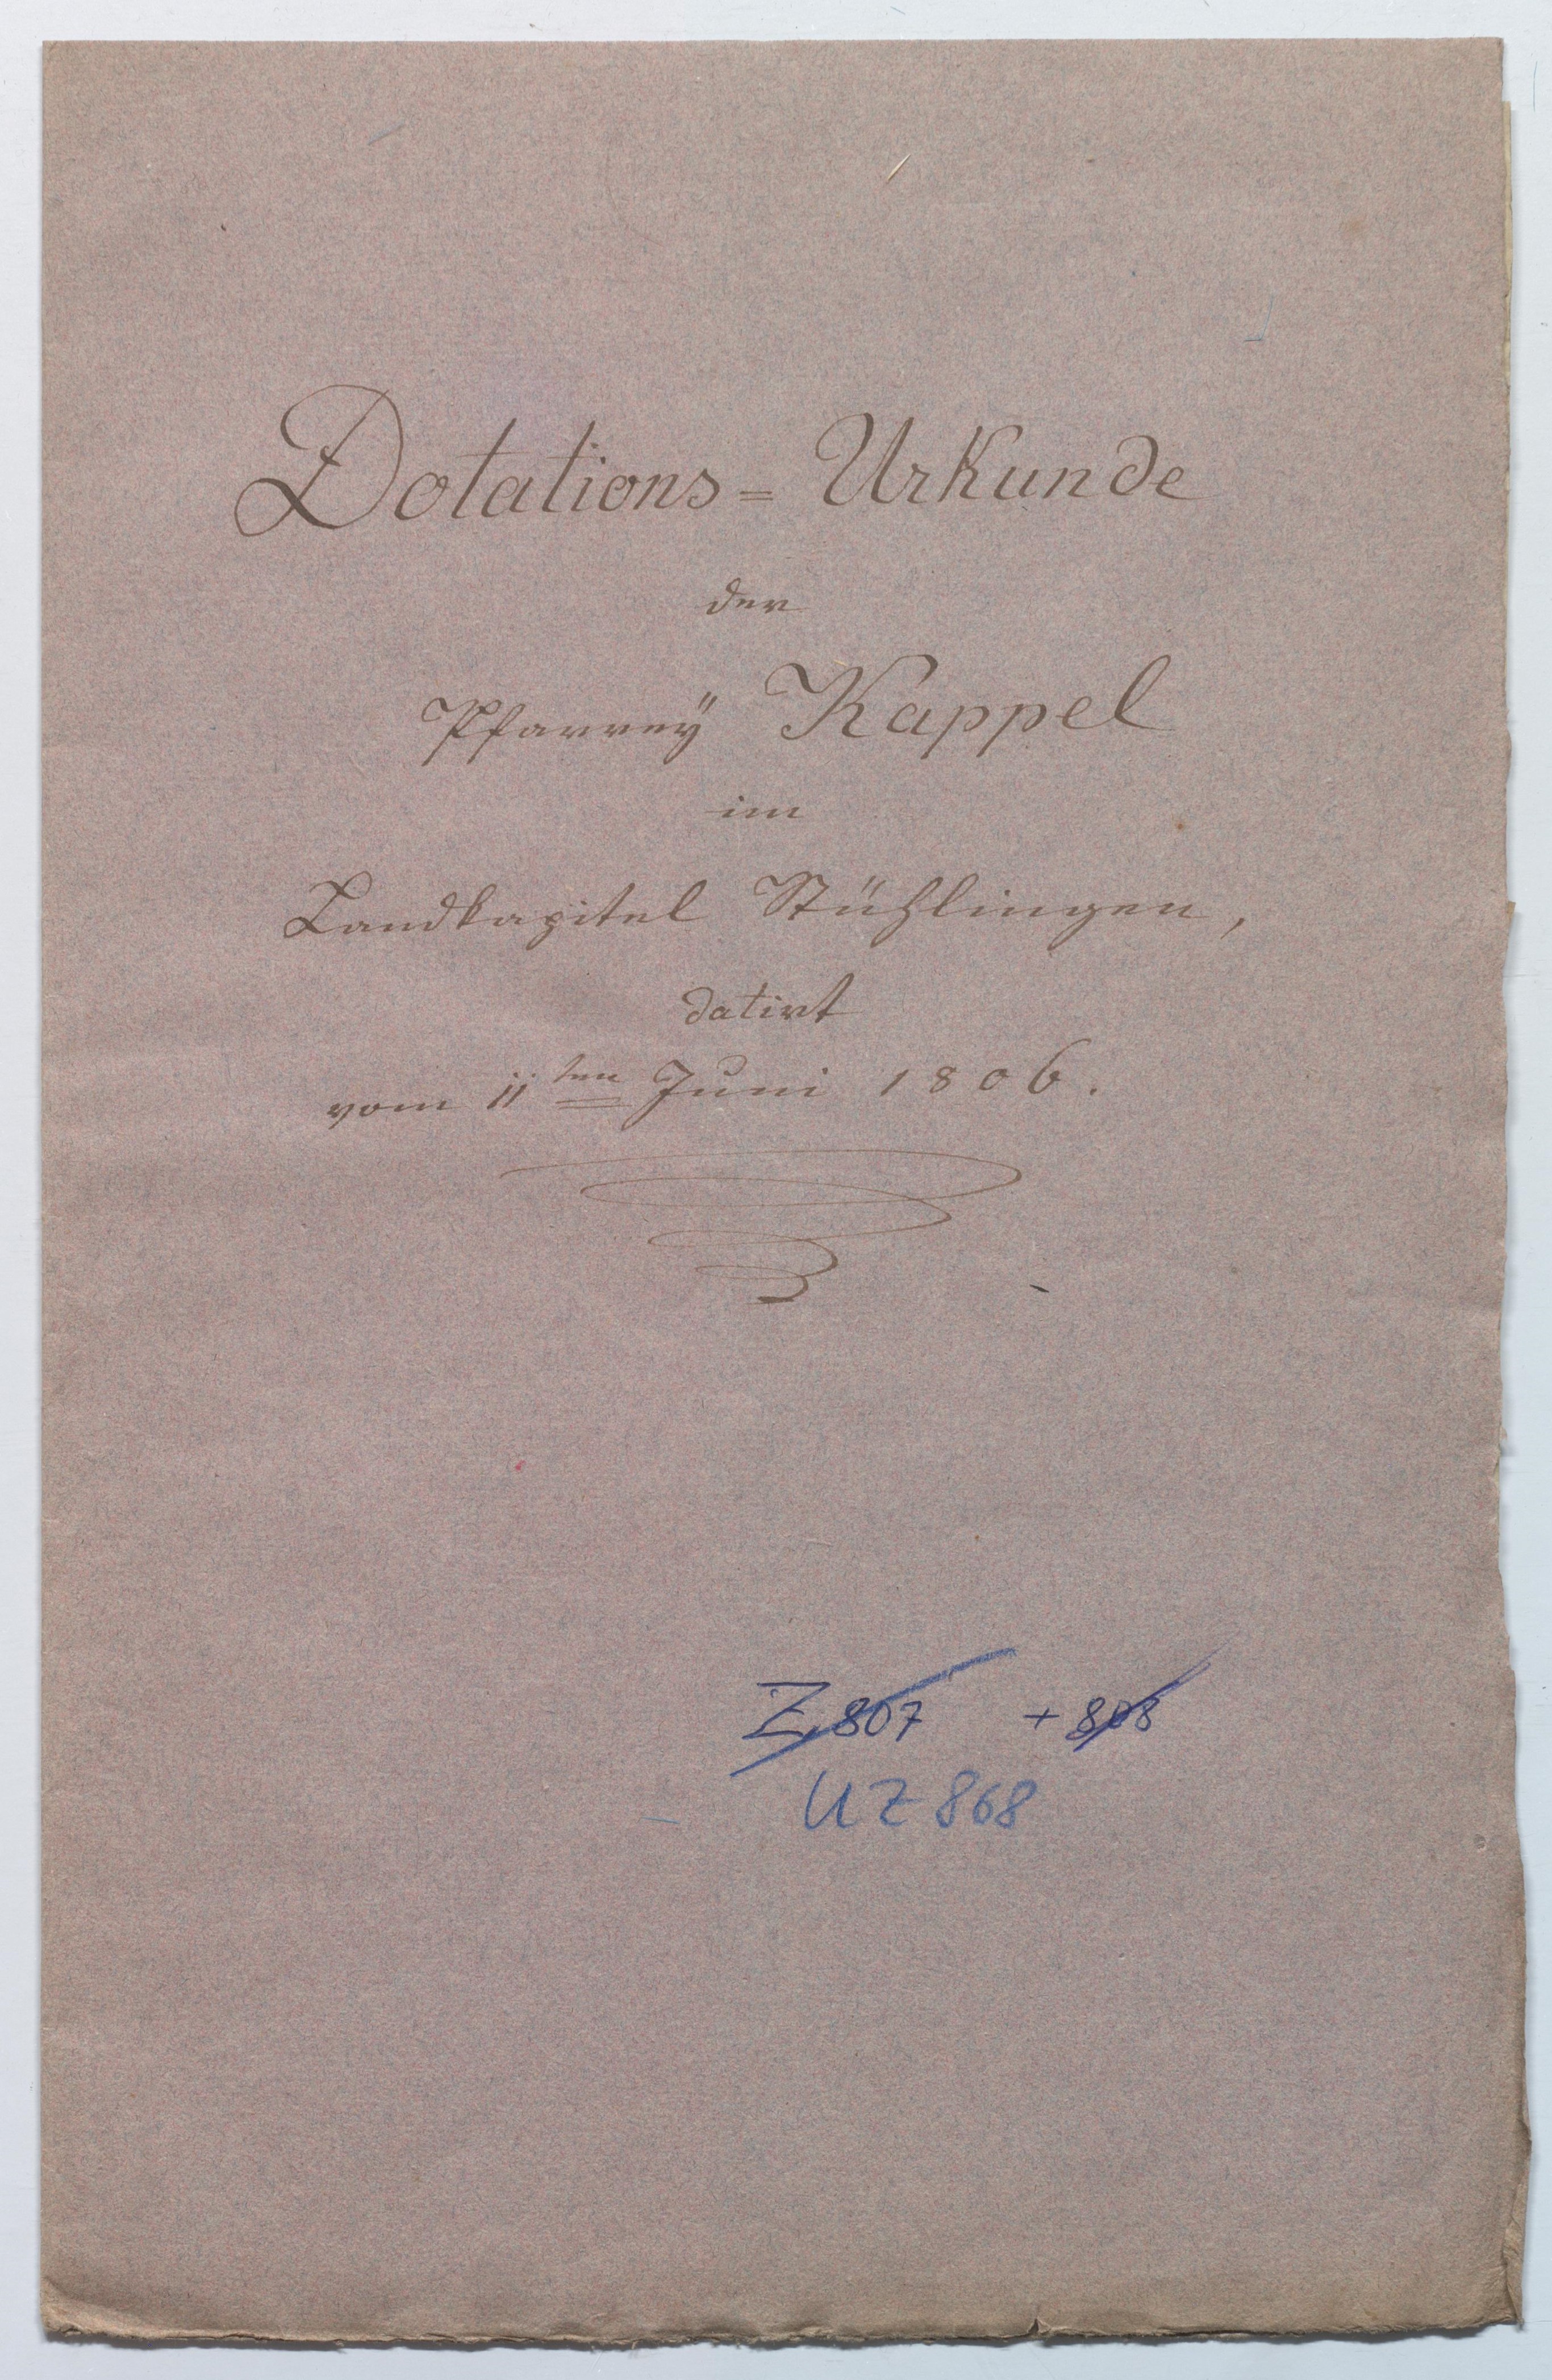 Dotations = Urkunde
der
Pfarreÿ Kappel
im
Landkapitel Stühlingen,
datirt
vom 11ten Juni 1806.
Z. 807 + 808
UZ 868